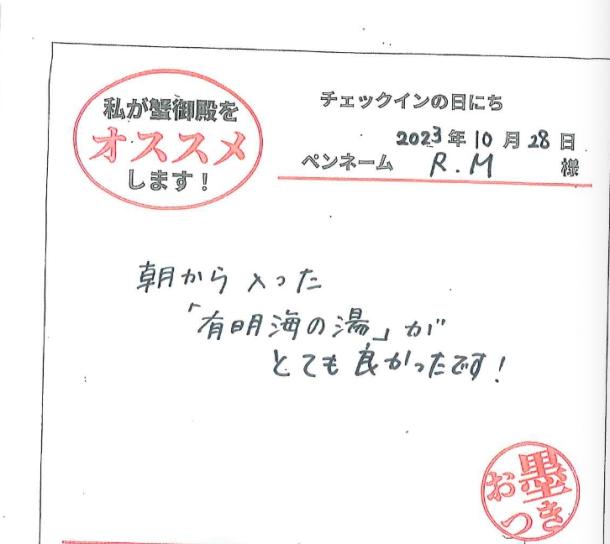 私が蟹御殿を
オススメ
します！
チェックインの日にち
2023年10月28日
ペンネーム R.M 様
朝から入った
「有明海の湯」が
とても良かったです！
お墨
つき